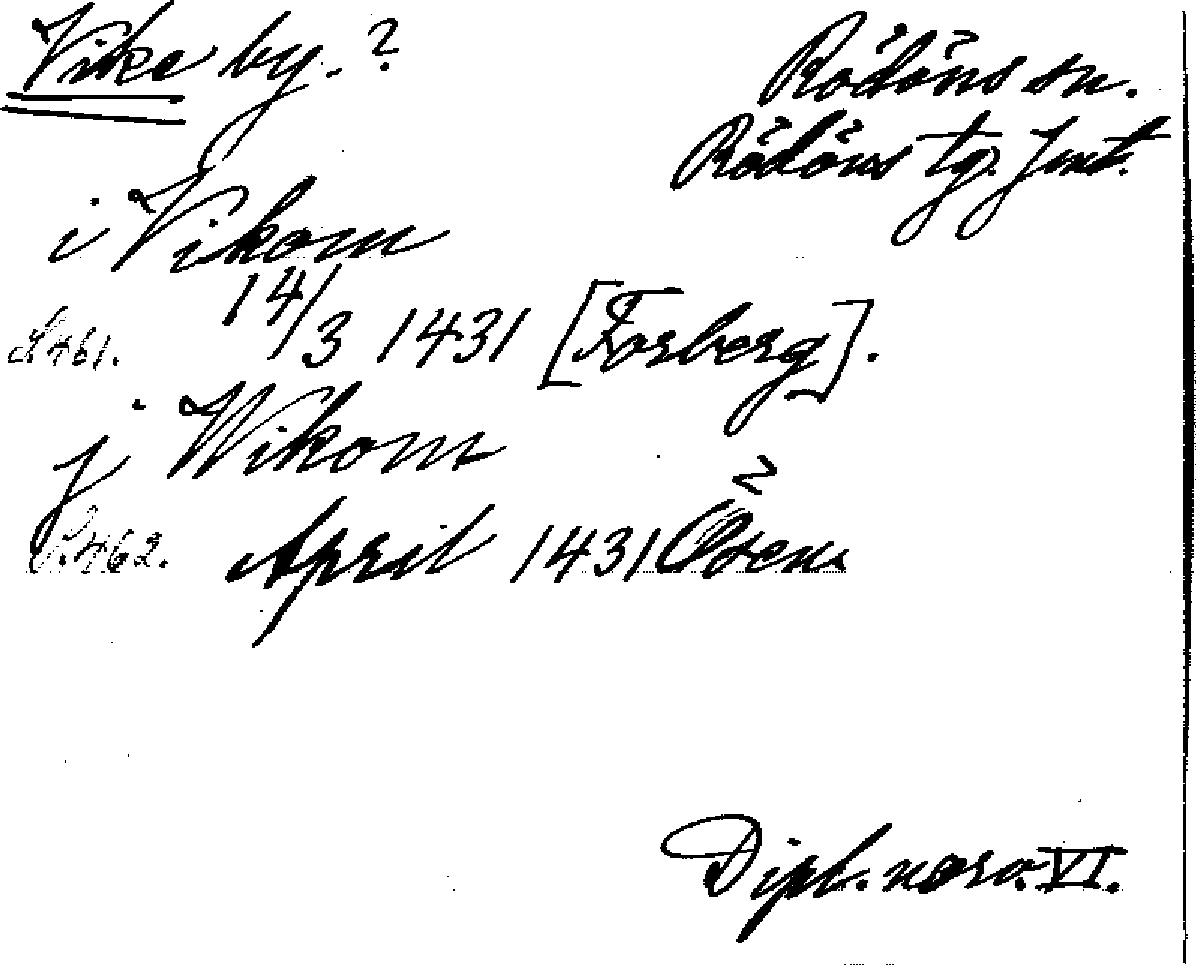 Vike by.?
Rödöns sn.
Rödöns tg. Jmt.
i Vikom
S. 461. 14/3 1431 [Forberg].
j Wikom
S. 462. April 1431 Ösen.
Dipl. norv. VI.